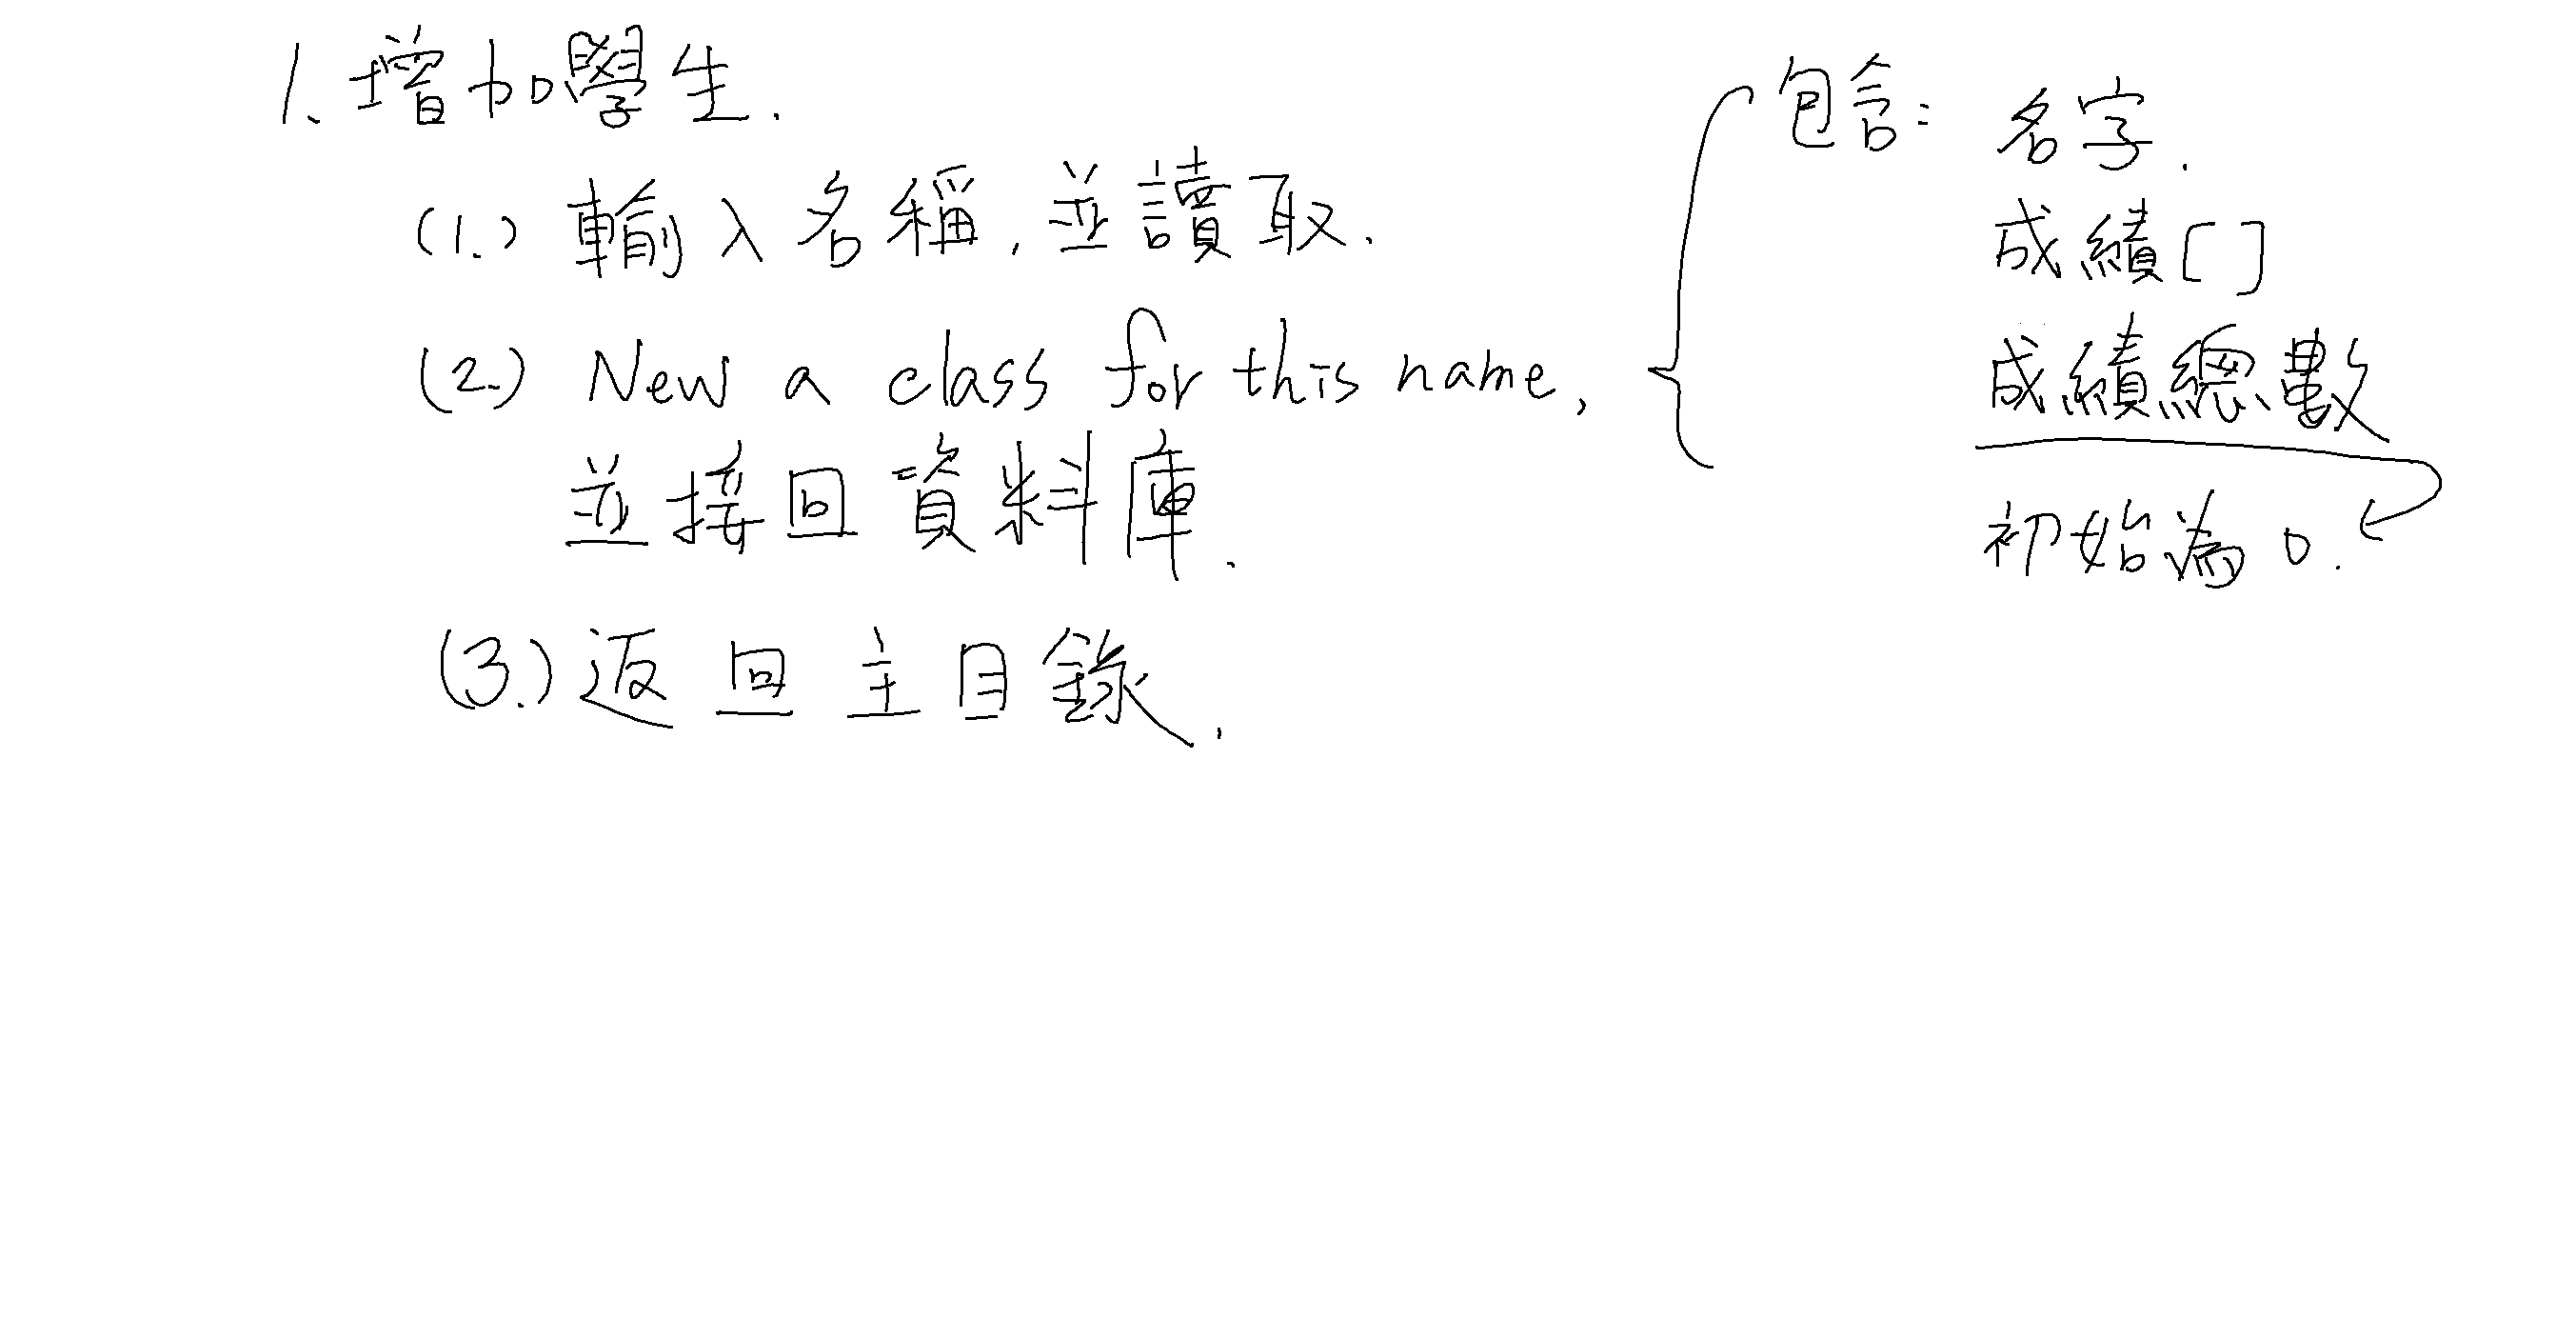 1. 增加學生.
(1.) 輸入名稱, 並讀取.
(2.) New a class for this name,
並接回資料庫.
(3.) 返回主目錄.
包含: 名字.
成績[]
成績總數
初始為0.